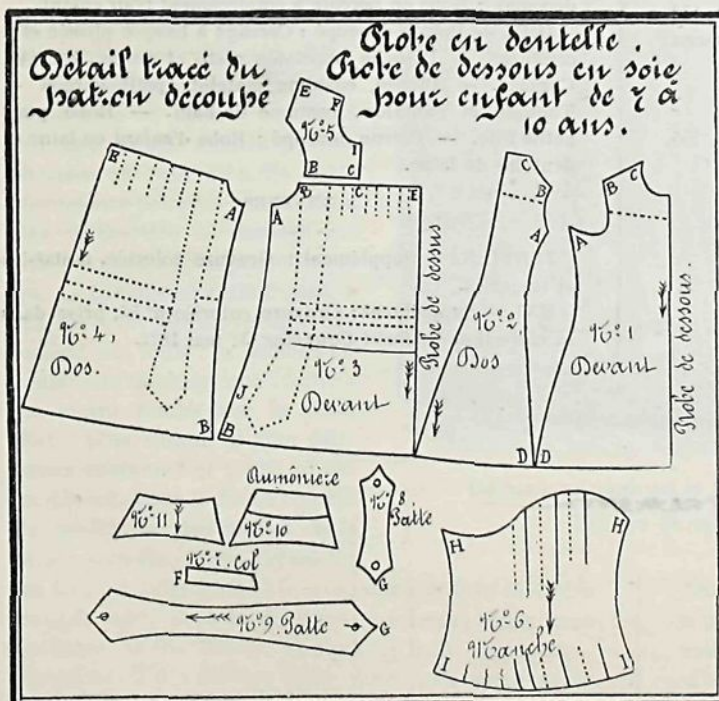 Détail tracé du
patron découpé
Robe en dentelle.
Robe de dessous en soie
pour enfant de 7 à
10 ans.
E
F
No 5
B
C
E
A
No 4.
Dos.
B
B
C
E
A
No 3
Devant
J
B
Robe de dessus
C
B
A
No 2.
Dos
D
B
C
A
No 1
Devant
D
Robe de dessous
Aumônière
No 11
No 10
No 8
Patte
G
No 7. Col
F
No 9. Patte
G
H
H
No 6.
Manche
I
I